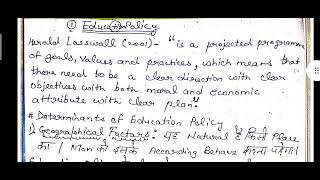 ① Education Policy
Herald Lasswall (2001)- "is a projected programm
of goals, values and practices, which means that
there need to be a clear direction with clear
objectives with both moral and economic
attribute with clear plan."
# Determinants of Education Policy
1) Geographical Factors: यह Natural है किसी Place
का / Man को इसके According Behave करना पड़ेगा।